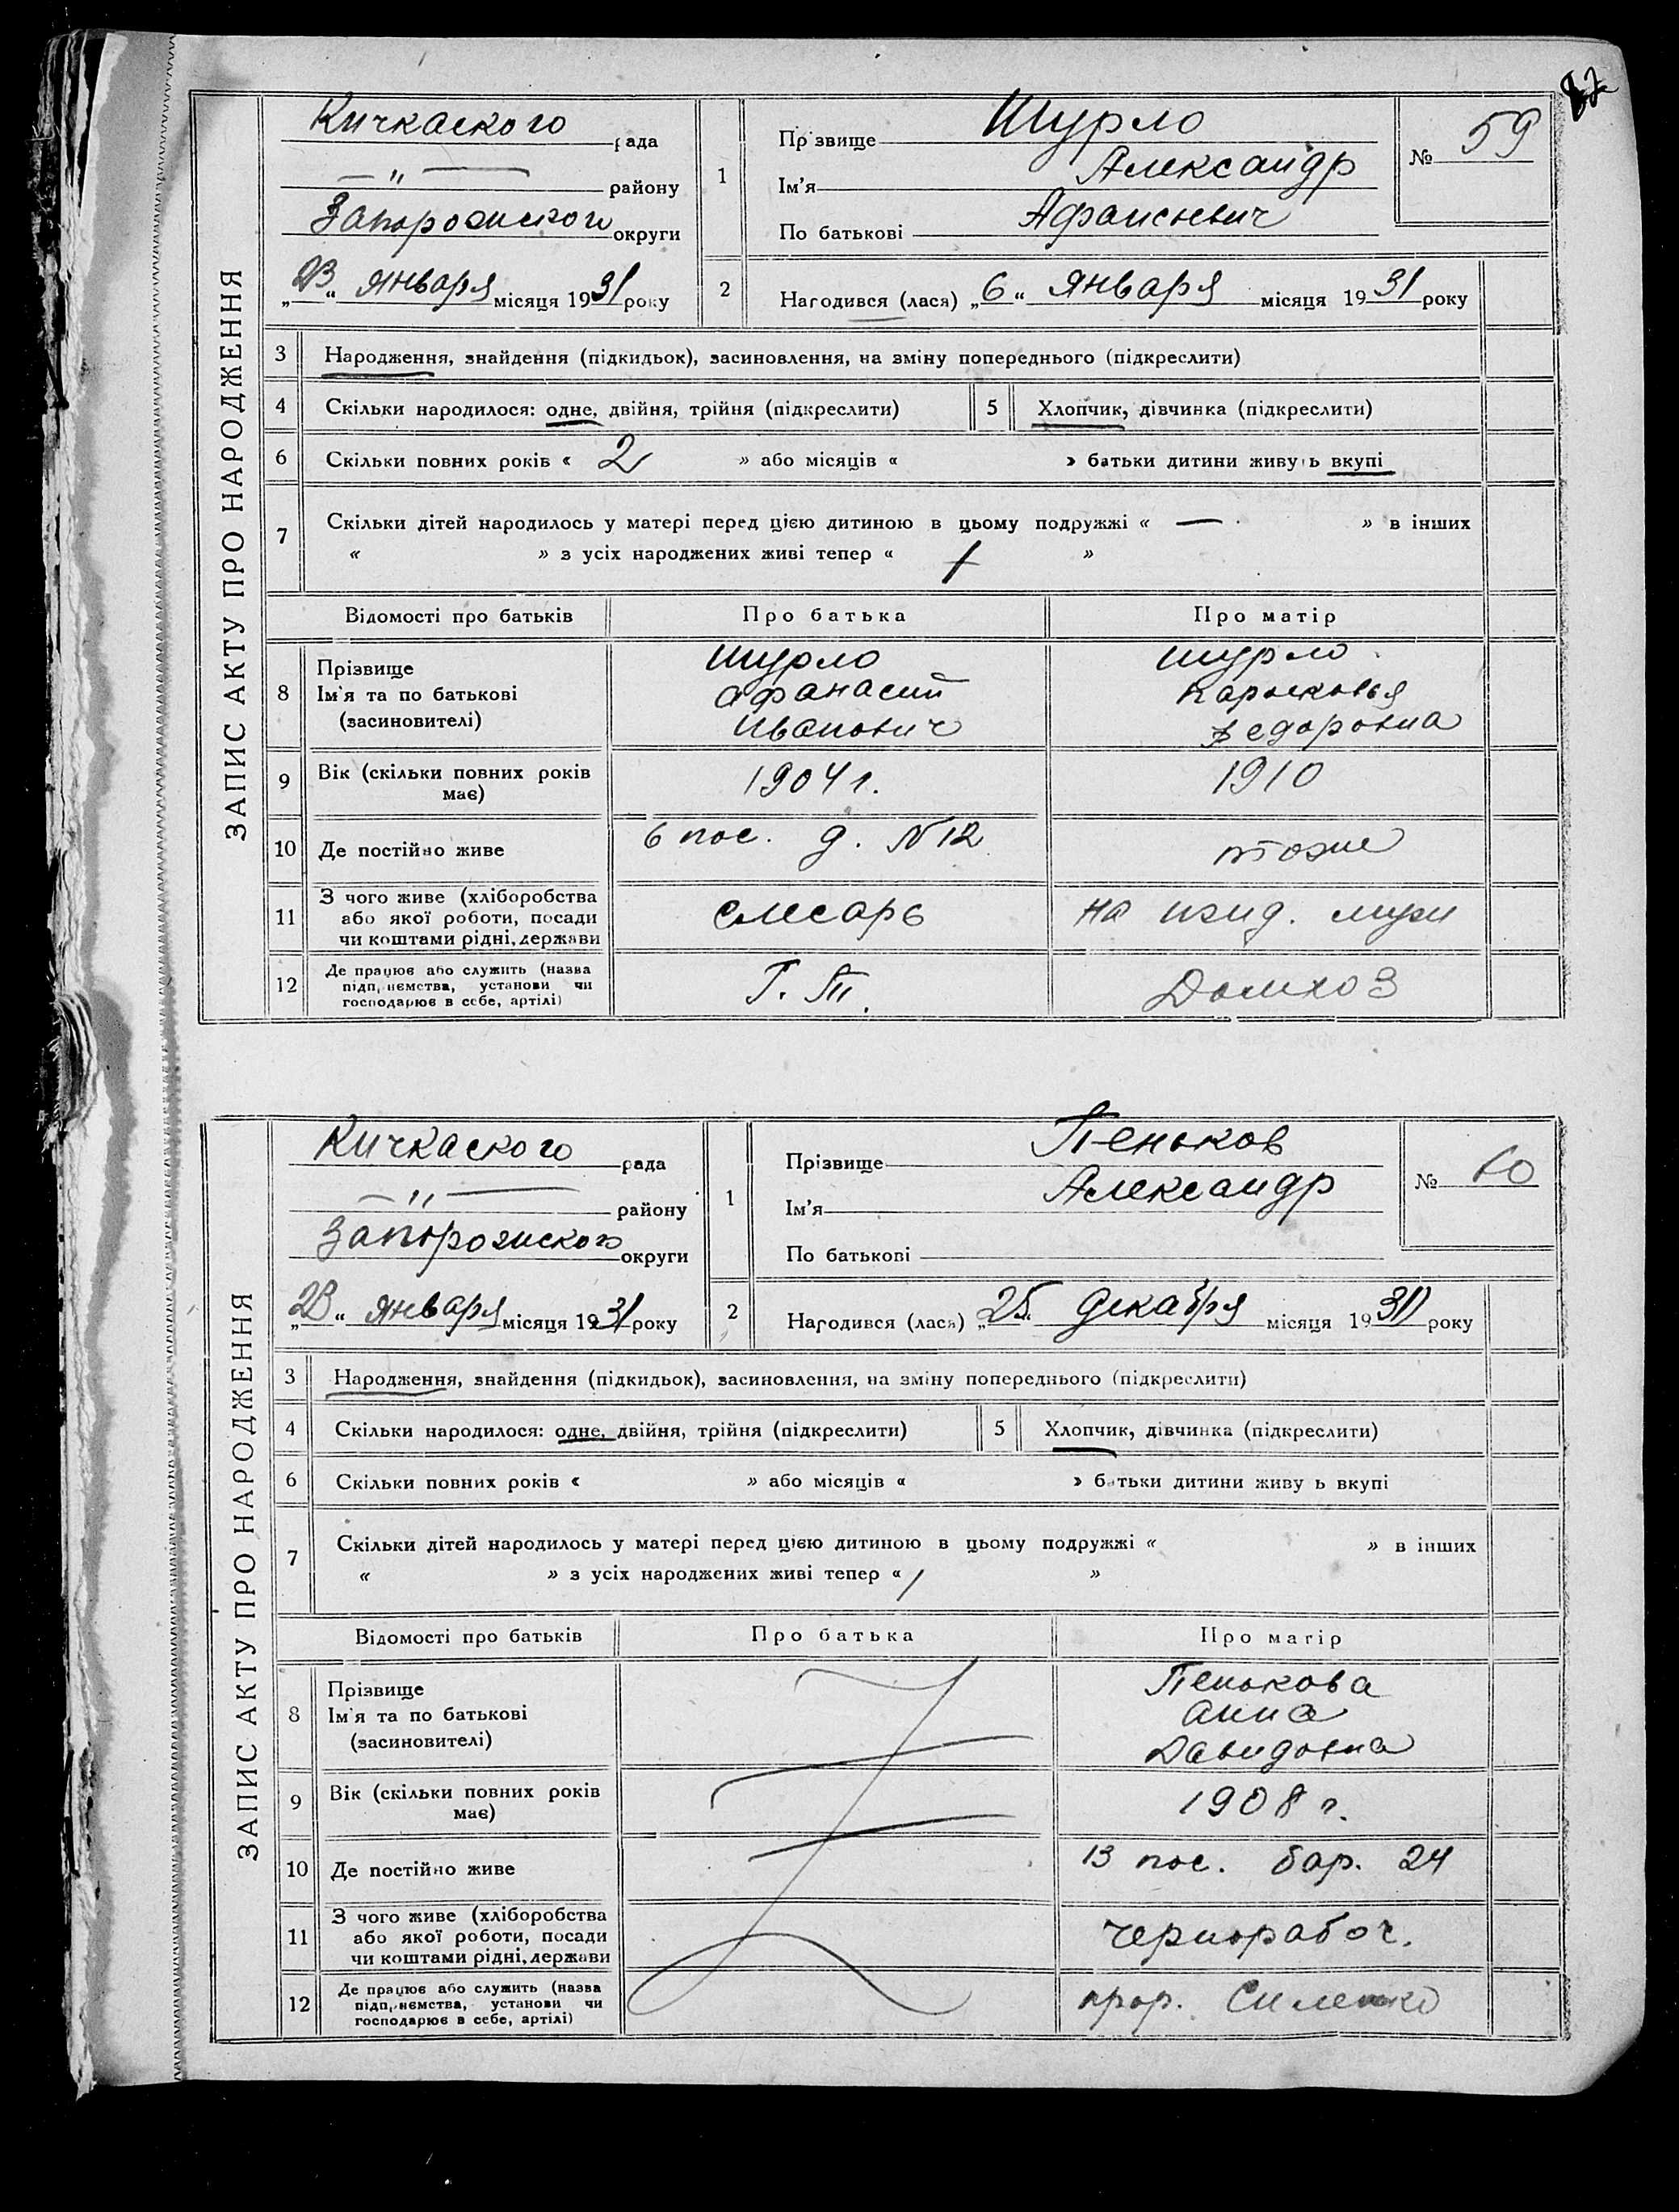 ЗАПИС АКТУ ПРО НАРОДЖЕННЯ
Кичкаского рада
— " — району
Запорожского округи
„23“ января місяця 1931 року
1
Прізвище Шурло
Ім'я Александр
По батькові Афанасьевич
№ 59
2 Народився (лася) „6“ января місяця 1931 року
3 Народження, знайдення (підкидьок), засиновлення, на зміну попереднього (підкреслити)
4 Скільки народилося: одне, двійня, трійня (підкреслити) 5 Хлопчик, дівчинка (підкреслити)
6 Скільки повних років « 2 » або місяців « » батьки дитини живуть вкупі
7 Скільки дітей народилось у матері перед цією дитиною в цьому подружжі « — » в інших
« » з усіх народжених живі тепер « 1 »
Відомості про батьків Про батька Про матір
8 Прізвище Шурло Шурло
Ім'я та по батькові Афанасий Парасковья
(засиновителі) Иванович Федоровна
9 Вік (скільки повних років має) 1904 г. 1910
10 Де постійно живе 6 пос. д. №12 тоже
11 З чого живе (хліборобства або якої роботи, посади чи коштами рідні, держави слесарь на ижд. мужи
12 Де працює або служить (назва підприємства, установи чи господарює в себе, артілі) Домхоз
ЗАПИС АКТУ ПРО НАРОДЖЕННЯ
Кичкаского рада
— " — району
Запорожского округи
„23“ января місяця 1931 року
1
Прізвище Пеньков
Ім'я Александр
По батькові
№ 60
2 Народився (лася) „25“ декабря місяця 1930 року
3 Народження, знайдення (підкидьок), засиновлення, на зміну попереднього (підкреслити)
4 Скільки народилося: одне, двійня, трійня (підкреслити) 5 Хлопчик, дівчинка (підкреслити)
6 Скільки повних років « » або місяців « » батьки дитини живу ь вкупі
7 Скільки дітей народилось у матері перед цією дитиною в цьому подружжі « » в інших
« » з усіх народжених живі тепер « 1 »
Відомості про батьків Про батька Про матір
8 Прізвище Пенькова
Ім'я та по батькові Анна
(засиновителі) Давидовна
9 Вік (скільки повних років має) 1908 г.
10 Де постійно живе 13 пос. бар. 24
11 З чого живе (хліборобства або якої роботи, посади чи коштами рідні, держави чернорабоч.
12 Де працює або служить (назва підприємства, установи чи господарює в себе, артілі) прор.